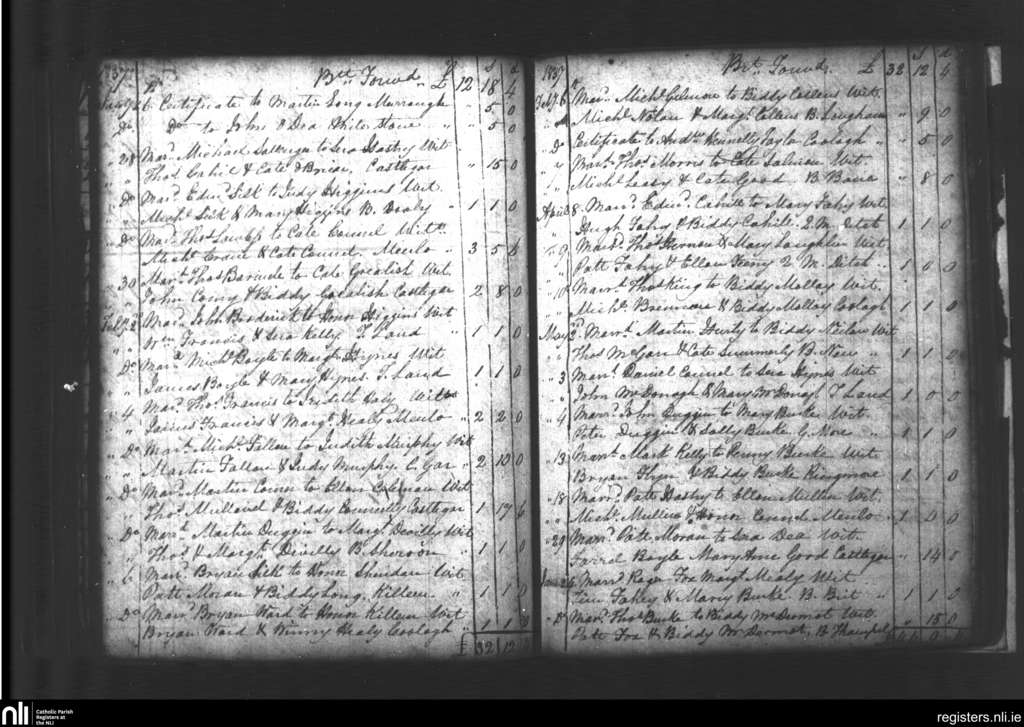 1837 Bt. Forwd. £ 12 18 4
6 Certificate to Martin Long Murrough " 5 0
Do Do to John O Dea White Stone " 5 0
28 Mard. Michael Sullivan to Sera Hasty Wit
Thos Cahil & Cate O Brien, Castlegar " 15 0
Do Mard. Edwd. Silk to Judy Higgins Wit
Michl Silk & Mary Higgins B. Dooly " 1 1 0
Do Mard. Thos to Cate Council Wits.
& Cate Council, Menlo " 3 5 6
30 Mard. Thos to Cate Goaldish Wit
John Coiny & Biddy Goaldish Castlegar 2 8 0
Feby 2 Mard. John Broderick to Honor Higgins Wit
Wm Francis & Sera Kelly T. Land " 1 1 0
Do Mard. Michl Boyle to Margt. Hynes Wit
James Boyle & Mary Hynes. T. Land 1 1 0
4 Mard. Thos Francis to Wits
James Francis & Margt. Healy Menlo " 2 2 0
Do Mard. Michl Fallon to Judith Murphy Wit
Martin Fallon & Judy Murphy C. Gar " 2 10 0
Do Mard. Martin Comer to Ellen Coleman Wit
Thos Mullend & Biddy Connelly Castlegar 1 17 6
Do Mard. Martin Duggin to Margt. Devilly Wit
Thos & Margt. Devilly B. 1 1 0
6 Mard. Bryan Silk to Honor Sheridan Wit
Patt Moran & Biddy Long, Killeen " 1 1 0
Do Mard. Bryan Ward to Honor Killeen Wit
Bryan Ward & Winny Healy Coolagh " 1 1 0
£ 32 12
1837 Bt. Forwd. £ 32 12 4
Feby 6 Mard. Michl Gilmore to Biddy Collens Wit.
Michl Nolan & Margt. Collens B. " 9 0
Do Certificate to Andw Kennelly Coolagh " 5 0
7 Mard. Thos Morris to Cate Salmon Wit
Michl Leasy & Cate Good B. Bane " 8 0
April 8 Mard. Edwd. Cahill to Mary Fahy Wit
Hugh Fahy & Biddy Cahill 2. M. Ditch 1 1 0
9 Mard. Thos Hernon & Mary Loughlin Wit
Patt Fahy & Ellen Henry 2 M. Ditch " 1 0 0
10 Mard. Thos King to Biddy Mollay Wit.
Michl Brennan & Biddy Mollay Coolagh 1 1 0
May 2 Mard. Martin Hurty to Biddy Wit
Thos McGan & Cate Summerly B. New " 1 1 0
3 Mard. Daniel Council to Sera Hynes Wit
John McDonagh & Mary McDonagh T Land 1 0 0
4 Mard. John Duggin to Mary Burke Wit
Peter Duggin & Sally Burke G. More " 1 1 0
13 Mard. Mark Kelly to Penny Burke Wit
Bryan Flyn & Biddy Burke Ringmore 1 1 0
18 Mard. Patt Hasty to Ellen Mullin Wit.
Michl Mullin & Honor Menlo 1 0 0
29 Mard. Patt Moran to Sera Dea Wit
Farrel Boyle Mary Anne Good Castlegar " 14 0
June 26 Mard. Roger Fox Margt Mealy Wit
Tim Fahey & Mary Burke B. Brit " 1 1 0
Do Mard. Thos Burke to Biddy McDermot Wit
Patt Fox & Biddy McDermot, B. " 15 0
nli
Catholic Parish
Registers at
the NLI
registers.nli.ie